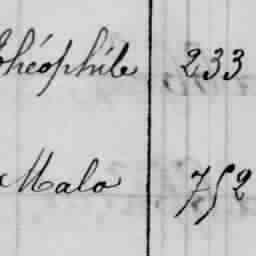 Théophile 233
Malo 752